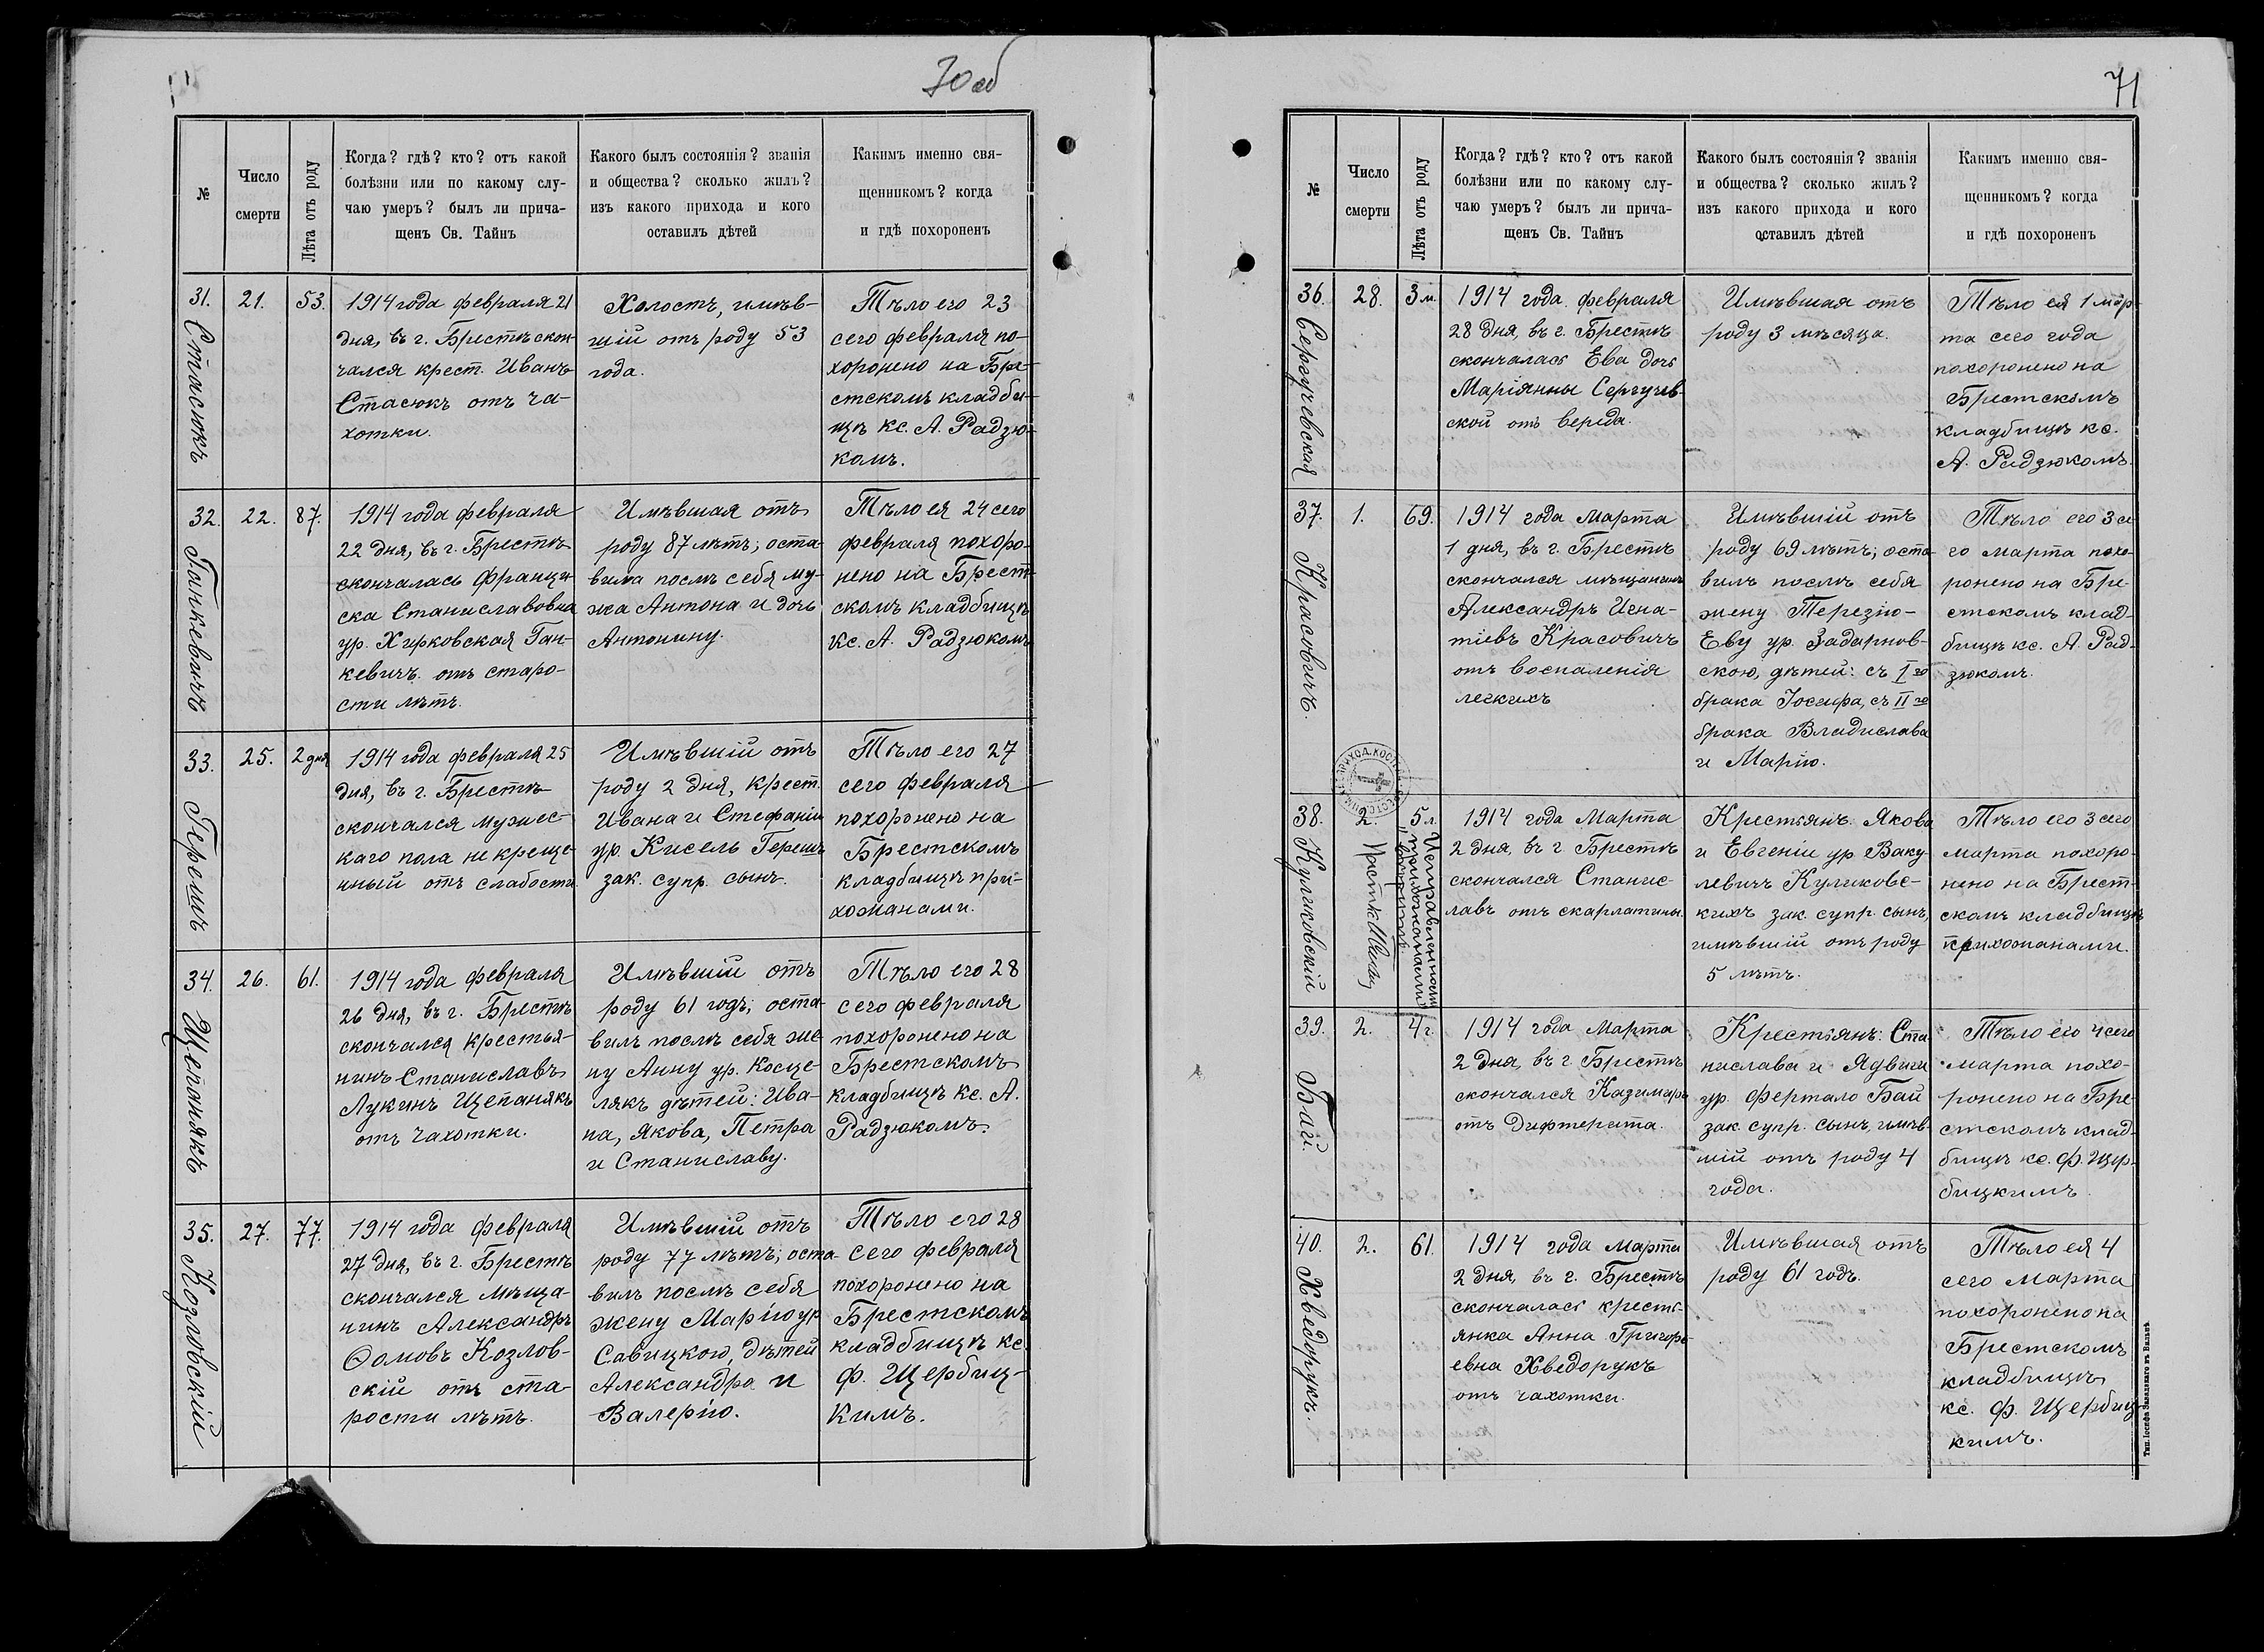 70 об
№
Число
смерти
Лѣта отъ роду
Когда? гдѣ? кто? отъ какой
болѣзни или по какому слу-
чаю умеръ? былъ ли прича-
щенъ Св. Тайнъ
Какого былъ состоянія? званія
и общества? сколько жилъ?
изъ какого прихода и кого
оставилъ дѣтей
Какимъ именно свя-
щенникомъ? когда
и гдѣ похороненъ
31.
Стасюкъ
21.
53.
1914 года февраля 21
дня, въ г. Брестѣ скон-
чался крест. Иванъ
Стасюкъ отъ ча-
хотки.
Холостъ, имѣв-
шій отъ роду 53
года.
Тѣло его 23
сего февраля по-
хоронено на Бре-
стскомъ кладби-
щѣ кс. А. Радзю-
комъ.
32.
Ганкевичъ
22.
87.
1914 года февраля
22 дня, въ г. Брестѣ
скончалась Францы-
ска Станиславовна
ур. Хирковская Ган-
кевичъ отъ старо-
сти лѣтъ.
Имѣвшая отъ
роду 87 лѣтъ; оста-
вила послѣ себя му-
жа Антона и дочь
Антонину.
Тѣло ея 24 сего
февраля похоро-
нено на Брест-
скомъ кладбищѣ
кс. А. Радзюкомъ
33.
Герешъ
25.
2 дня
1914 года февраля 25
дня, въ г. Брестѣ
скончался мужес-
каго пола не креще-
нный отъ слабости
Имѣвшій отъ
роду 2 дня, крест.
Ивана и Стефаніи
ур. Кисель Герешъ
зак. супр. сынъ.
Тѣло его 27
сего февраля
похоронено на
Брестскомъ
кладбищѣ при-
хожанами.
34.
Щепонякъ
26.
61.
1914 года февраля
26 дня, въ г. Брестѣ
скончался крестья-
нинъ Станиславъ
Лукинъ Щепанякъ
отъ чахотки.
Имѣвшій отъ
роду 61 годъ; оста-
вилъ послѣ себя же-
ну Анну ур. Косце-
лякъ дѣтей: Ива-
на, Якова, Петра
и Станиславу.
Тѣло его 28
сего февраля
похоронено на
Брестскомъ
кладбищѣ кс. А.
Радзюкомъ.
35.
Козловскій
27.
77.
1914 года февраля
27 дня, въ г. Брестѣ
скончался мѣща-
нинъ Александръ
Ѳомовъ Козлов-
скій отъ ста-
рости лѣтъ.
Имѣвшій отъ
роду 77 лѣтъ; оста-
вилъ послѣ себя
жену Марію ур
Савицкою, дѣтей
Александра и
Валерію.
Тѣло его 28
сего февраля
похоронено на
Брестскомъ
кладбищѣ кс.
Ф. Щербиц-
кимъ.
71
№
Число
смерти
Лѣта отъ роду
Когда? гдѣ? кто? отъ какой
болѣзни или по какому слу-
чаю умеръ? былъ ли прича-
щенъ Св. Тайнъ
Какого былъ состоянія? званія
и общества? сколько жилъ?
изъ какого прихода и кого
оставилъ дѣтей
Какимъ именно свя-
щенникомъ? когда
и гдѣ похороненъ
36.
Сергучевская
28.
3 м.
1914 года февраля
28 дня, въ г. Брестѣ
скончалась Ева дочь
Маріянны Сергучев-
ской отъ вереда.
Имѣвшая отъ
роду 3 мѣсяца.
Тѣло ея 1 мар-
та сего года
похоронено на
Брестскомъ
кладбищѣ кс.
А. Радзюкомъ.
37.
Красовичъ.
1.
69.
1914 года Марта
1 дня, въ г. Брестѣ
скончался мѣщанинъ
Александръ Игна-
тіевъ Красовичъ
отъ воспаленія
легкихъ
Имѣвшій отъ
роду 69 лѣтъ; оста-
вилъ послѣ себя
жену Терезію-
Еву ур. Задарнов-
скою, дѣтей: съ I го
брака Іосифа, съ II го
брака Владислава
и Марію.
Тѣло его 3 се
го марта похо-
ронено на Бре
стскомъ клад-
бищѣ кс. А. Рад-
зюкомъ.
38.
Куликовскій
2.
5 л.
Исправленному
„прихожанами“
1914 года Марта
2 дня, въ г. Брестѣ
скончался Станис-
лавъ отъ скарлатины.
Крестьянъ: Якова
и Евгеніи ур. Ваку-
левичъ Куликовс-
кихъ зак. супр. сынъ,
имѣвшій отъ роду
5 лѣтъ.
Тѣло его 3 сего
марта похоро-
нено на Брест-
скомъ кладбищѣ
прихожанами.
39.
Бай.
2.
4 г.
1914 года Марта
2 дня, въ г. Брестѣ
скончался Казимиръ
отъ дифтерита.
Крестьянъ: Ста-
нислава и Ядвиги
ур. Фертало Бай
зак. супр. сынъ, имѣв-
шій отъ роду 4
года.
Тѣло его 4 сего
марта похо-
ронено на Бре-
стскомъ клад-
бищѣ кс. Ф. Щер-
бицкимъ.
40.
Хведорукъ.
2.
61.
1914 года Марта
2 дня, въ г. Брестѣ
скончалась кресть-
янка Анна Григорь-
евна Хведорукъ
отъ чахотки.
Имѣвшая отъ
роду 61 годъ.
Тѣло ея 4
сего Марта
похоронено на
Брестскомъ
кладбищѣ
кс. Ф. Щербиц-
кимъ.
Тип. Іосифа Завадзкаго въ Вильнѣ.